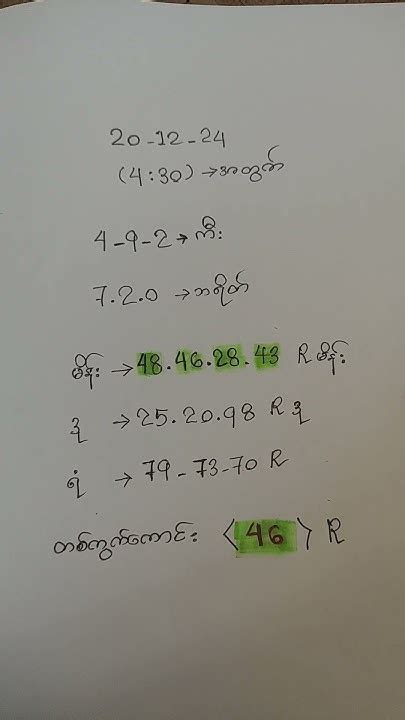 20-12-24
(4:30) →အတွက်
4-9-2→ ကီး
7.2.0 →ဘရိတ်
မိန်း →48.46.28.43 R မိန်း
ဒု →25.20.98 R ဒု
ရံ →79-73-70 R
တစ်ကွက်ကောင်း 〈46〉 R